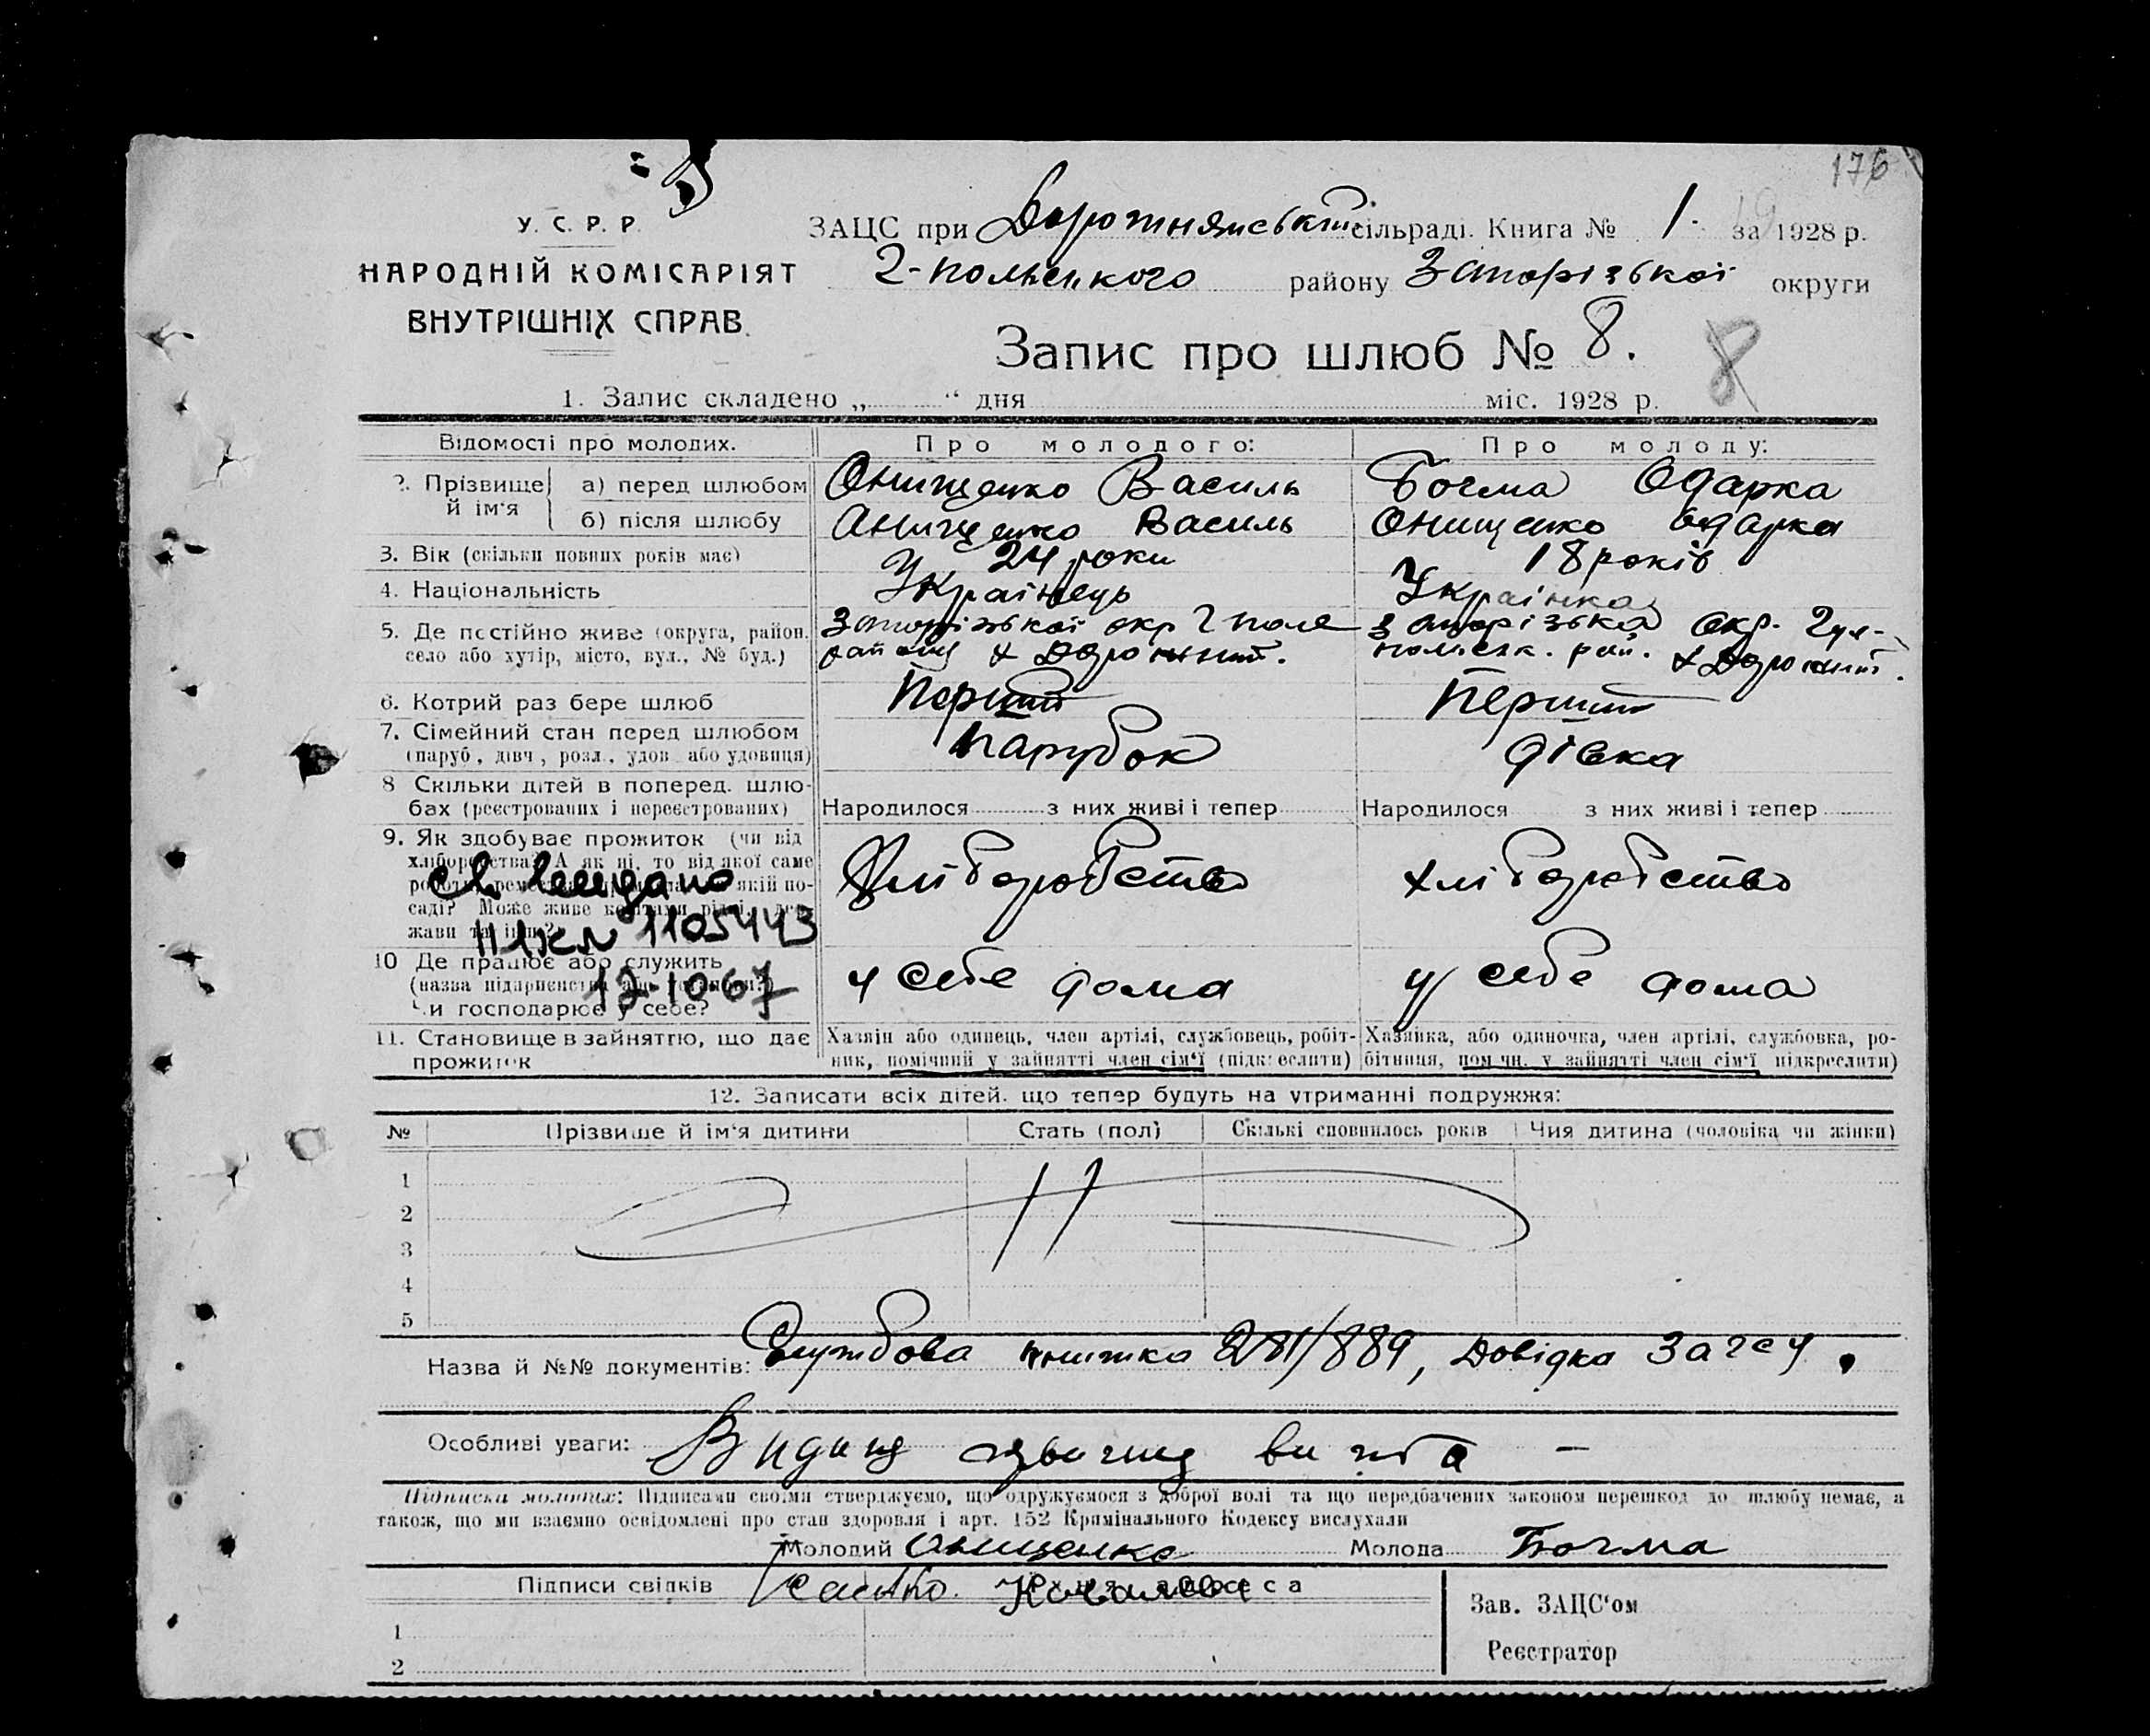 176
У. С. Р. Р.
НАРОДНІЙ КОМІСАРІЯТ
ВНУТРІШНІХ СПРАВ.
ЗАЦС при Дорожнянській сільраді. Книга № 1. за 1928 р.
2-польского району Запорізької округи
Запис про шлюб № 8.
8
1. Запис складено „ “ дня міс. 1928 р.
Відомості про молодих. Про молодого: Про молоду:
2. Прізвище й ім‘я а) перед шлюбом Онищенко Василь Бочма Одарка
б) після шлюбу Онищенко Василь Онищенко Одарка
3. Вік (скільки повних років має) 24 роки 18 років
4. Національність Українець Українка
5. Де постійно живе (округа, район, Запорізької окр Г поле Запорізька окр. Гуля-
село або хутір, місто, вул., № буд.) району х Дорожний. польск. рай. х Дорожний.
6. Котрий раз бере шлюб Перший Перший
7. Сімейний стан перед шлюбом Парубок дівка
(паруб., дівч., розл., удов. або удовиця)
8 Скільки дітей в поперед. шлю-
бах (реєстрованих і нереєстрованих) Народилося з них живі і тепер Народилося з них живі і тепер
9. Як здобуває прожиток (чи від
хліборобства? А як ні, то від якої саме Хліборобство хліборобство
саді? Може живе
II ЖЛ № 1105443
10 Де працює або служить у себе дома у себе дома
12-1067
Чи господарює у себе?
11. Становище в зайняттю, що дає Хазяїн або одинець, член артілі, службовець, робіт- Хазяйка, або одиночка, член артілі, службовка, ро-
прожиток ник, помічний у зайнятті член сім‘ї (підкреслити) бітниця, пом‘чн. у зайнятті член сім‘ї підкреслити)
12. Записати всіх дітей. що тепер будуть на утриманні подружжя:
№ Прізвище й ім‘я дитини Стать (пол) Скількі сповнилось років Чия дитина (чоловіка чи жінки)
1
2
3
4
5
Назва й №№ документів: Службова книжка 281/889, Довідка Загсу.
Особливі уваги:
Підписи молодих: Підписами своїми стверджуємо, що одружуємося з доброї волі та що передбачених законом перешкод до шлюбу немає, а
також, що ми взаємно освідомлені про стан здоровля і арт. 152 Кримінального Кодексу вислухали
Молодий Онищенко Молода Бочма
Підписи свідків
1
2
Зав. ЗАЦС‘ом
Реєстратор